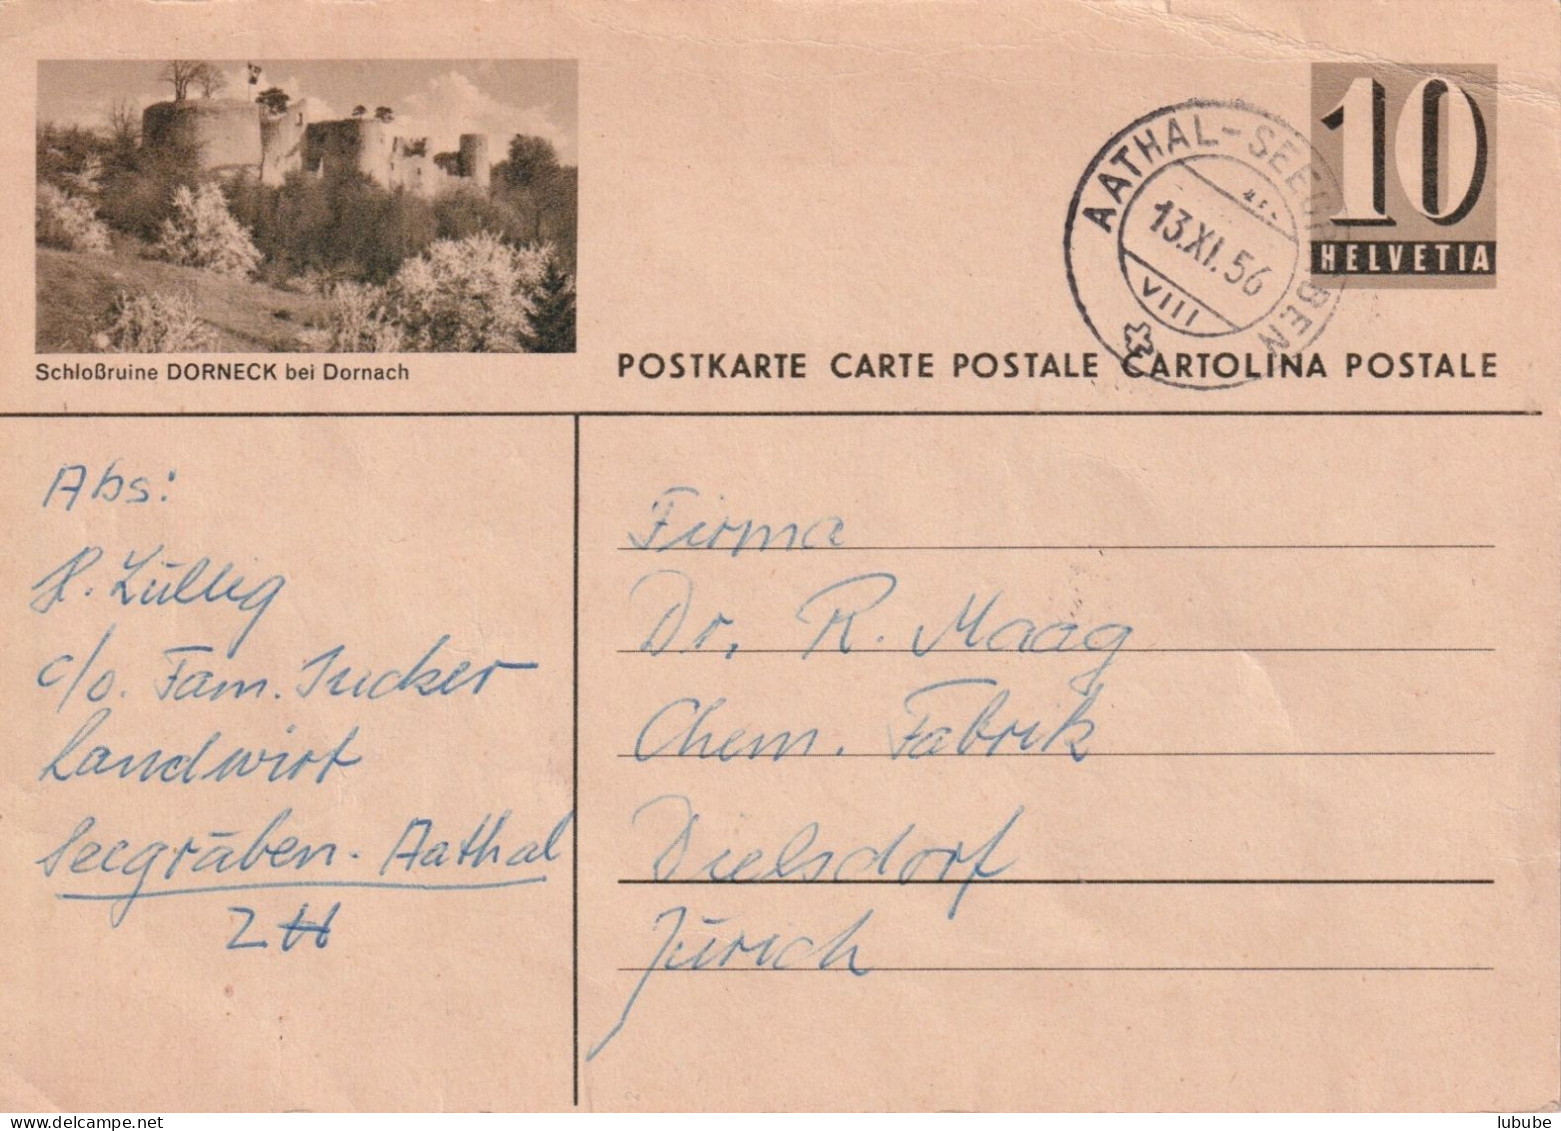 Schloßruine DORNECK bei Dornach
10
HELVETIA
AATHAL-SEEGRÄBEN
13.XI.56
VIII
POSTKARTE CARTE POSTALE CARTOLINA POSTALE
Abs:
H. Züllig
c/o. Fam. Jucker
Landwirt
Seegräben-Aathal
ZH
Firma
Dr. R. Maag
Chem. Fabrik
Dielsdorf
Zürich
lubube